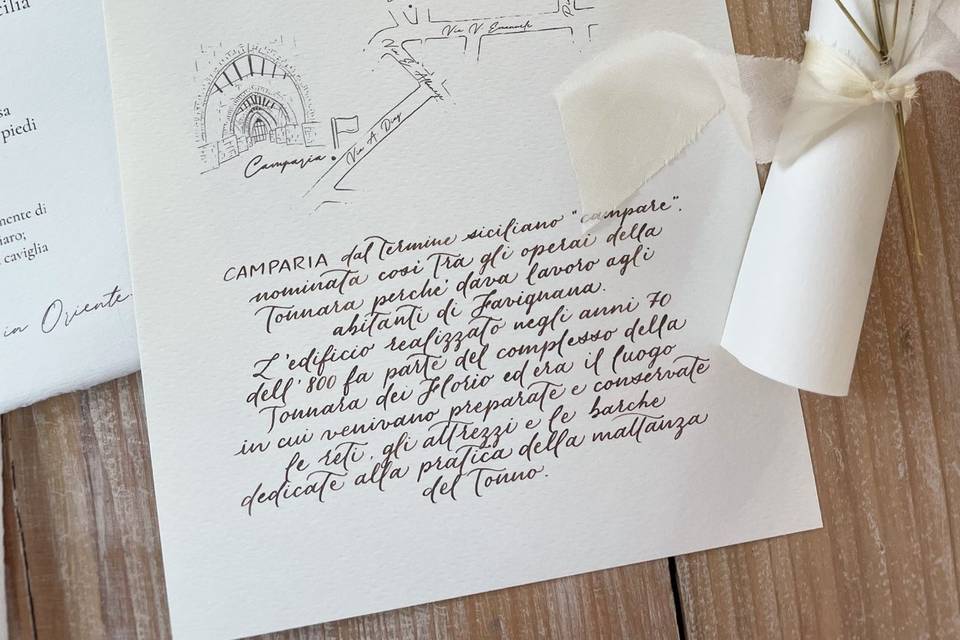 cilia
sa
piedi
mente di
iaro;
caviglia
in Oriente.
Via V. Emanuele
Via F.
Via A. Diaz
Camparia
CAMPARIA dal termine siciliano "campare".
nominata così tra gli operai della
Tonnara perché dava lavoro agli
abitanti di Favignana.
L'edificio realizzato negli anni 70
dell'800 fa parte del complesso della
Tonnara dei Florio ed era il luogo
in cui venivano preparate e conservate
le reti, gli attrezzi e le barche
dedicate alla pratica della mattanza
del Tonno.